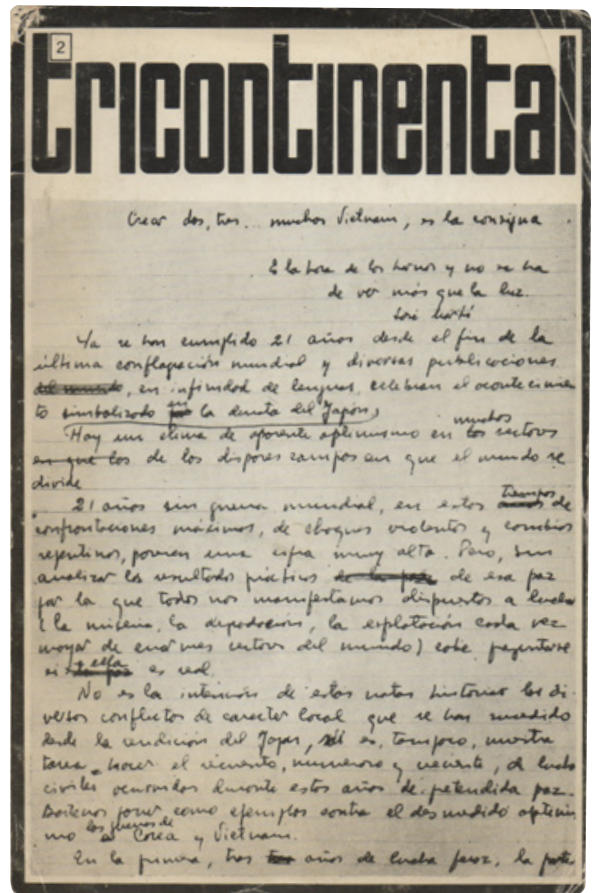 2
tricontinental
Crear dos, tres... muchos Vietnam, es la consigna.
Es la hora de los hornos y no se ha
de ver más que la luz.
José Martí
Ya se han cumplido 21 años desde el fin de la
última conflagración mundial y diversas publicaciones
del mundo, en infinidad de lenguas, celebran el acontecimien
to simbolizado en la derrota del Japón,
Hay un clima de aparente optimismo en muchos los sectores
en que los de los dispares campos en que el mundo se
divide
21 años sin guerra mundial, en estos tiempos de
confrontaciones máximas, de choques violentos y cambios
repentinos, parecen una cifra muy alta. Pero, sin
analizar los resultados prácticos de la paz de esa paz
por la que todos nos manifestamos dispuestos a luchar
(la miseria, la degradación, la explotación cada vez
mayor de enormes sectores del mundo) cabe preguntarse
si ella es real.
No es la intención de estas notas historiar los di-
versos conflictos de carácter local que se han sucedido
desde la rendición del Japón, es, tampoco, nuestra
tarea hacer el recuento, numeroso y creciente, de luchas
civiles ocurridas durante estos años de pretendida paz.
Bástenos poner como ejemplos contra el desmedido optimis
mo las guerras de Corea y Vietnam.
En la primera, tras años de lucha feroz, la parte